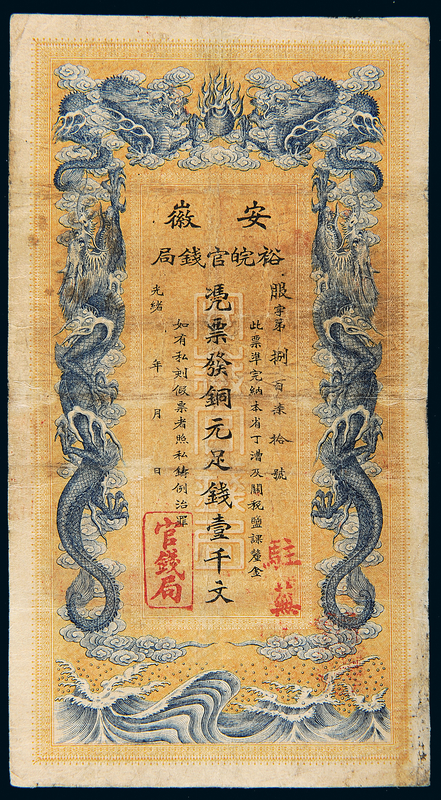 安徽
裕皖官錢局
服字第捌百柒拾號
此票準完納本省丁漕及關稅鹽課釐金
憑票發銅元足錢壹千文
如有私刻假票者照私鑄例治罪
光緒 年 月 日
官錢局
駐蕪